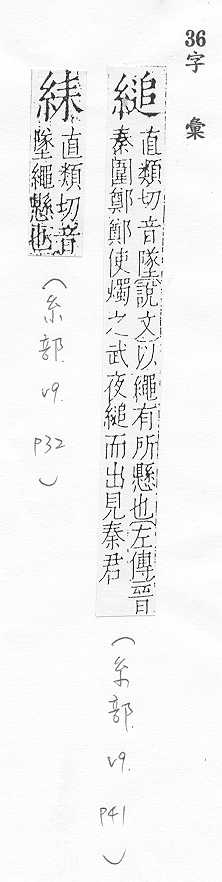 36字彙
縋
直類切音墜說文以繩有所懸也左傳晉
秦圍鄭鄭使燭之武夜縋而出見秦君
(糸部 v9. p41)
直類切音
墜繩懸也
(糸部 v9. p32)